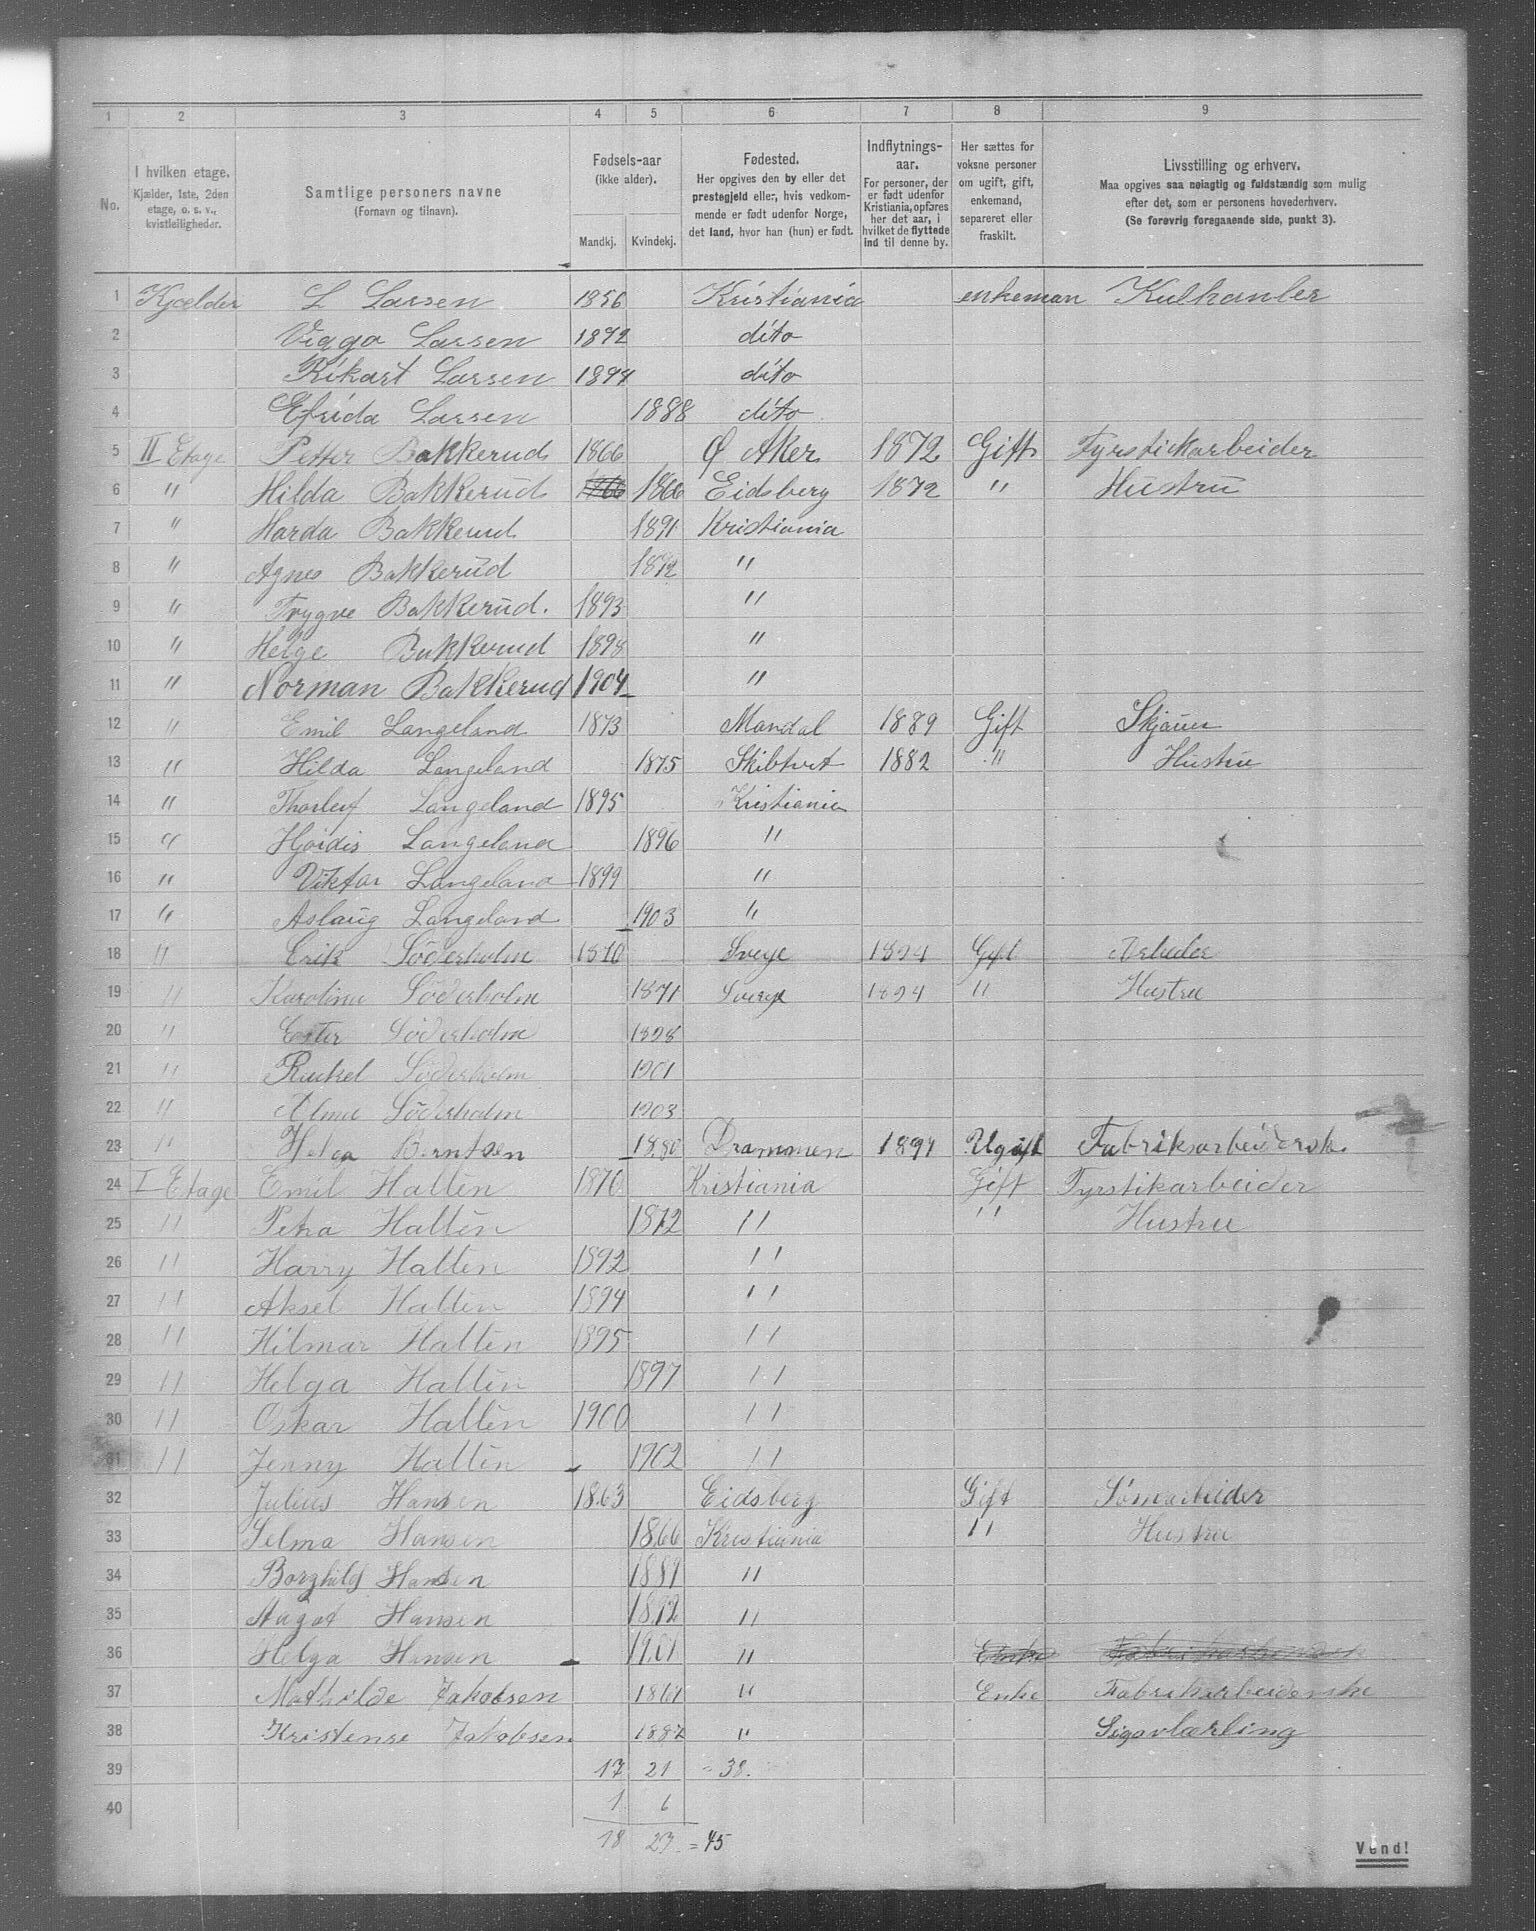 1 2 3 4 5 6 7 8 9
No.
I hvilken etage.
Kjælder, 1ste, 2den
etage, o. s. v.,
kvistleiligheder.
Samtlige personers navne
(Fornavn og tilnavn).
Fødsels-aar
(ikke alder).
Mandkj. Kvindekj.
Fødested.
Her opgives den by eller det
prestegjeld eller, hvis vedkom-
mende er født udenfor Norge,
det land, hvor han (hun) er født.
Indflytnings-
aar.
For personer, der
er født udenfor
Kristiania, opføres
her det aar, i
hvilket de flyttede
ind til denne by.
Her sættes for
voksne personer
om ugift, gift,
enkemand,
separeret eller
fraskilt.
Livsstilling og erhverv.
Maa opgives saa nøiagtig og fuldstændig som mulig
efter det, som er personens hovederhverv.
(Se forøvrig foregaaende side, punkt 3).
1 Kjælder L Larsen 1856 Kristiania enkeman Kulhanler
2 Viggo Larsen 1892 dito
3 Rikart Larsen 1894 dito
4 Efrida Larsen 1888 dito
5 II Etage Petter Bakkerud 1866 Ø Aker 1872 Gift Fyrstickarbeider
6 " Hilda Bakkerud 1866 1866 Eidsberg 1872 " Hustru
7 " Harda Bakkerud 1891 Kristiania
8 " Agnes Bakkerud 1892 "
9 " Trygve Bakkerud. 1893 "
10 " Helge Bakkerud 1898 "
11 " Norman Bakkerud 1904 "
12 " Emil Langeland 1873 Mandal 1889 Gift Skjauer
13 " Hilda Langeland 1875 Skibtvet 1882 " Hustru
14 " Thorleif Langeland 1895 Kristiania
15 " Hjoidis Langeland 1896 "
16 " Viktor Langeland 1899 "
17 " Aslaug Langeland 1903 "
18 " Erik Söderholm 1870 Sverje 1894 Gift Arbeder
19 " Karolina Söderholm 1871 Sverje 1894 " Hustru
20 " Ester Söderholm 1898
21 " Rackel Söderholm 1901
22 " Alma Söderholm 1903
23 " Helga Berntsen 1880 Drammen 1891 Ugift Fabriksarbeiderske.
24 I Etage Emil Halten 1870 Kristiania Gift Fyrstikarbeider
25 " Petra Halten 1872 " " Hustru
26 " Harry Halten 1892 "
27 " Aksel Halten 1894 "
28 " Hilmar Halten 1895 "
29 " Helga Halten 1897 "
30 " Oskar Halten 1900 "
31 " Jenny Halten 1902 "
32 Julius Hansen 1863 Eidsberg Gift Sömarbeider
33 Selma Hansen 1866 Kristiania " Hustru
34 Borghild Hansen 1891 "
35 Augot Hansen 1892 "
36 Helga Hansen 1901 " Enke
37 Mathilde Jakobsen 1861 " Enke Fabrikarbeiderske
38 Kristense Jakobsen 1882 " Sigavlærling
39 17 21 = 38.
40 1 6
18 27 = 45
Vend!